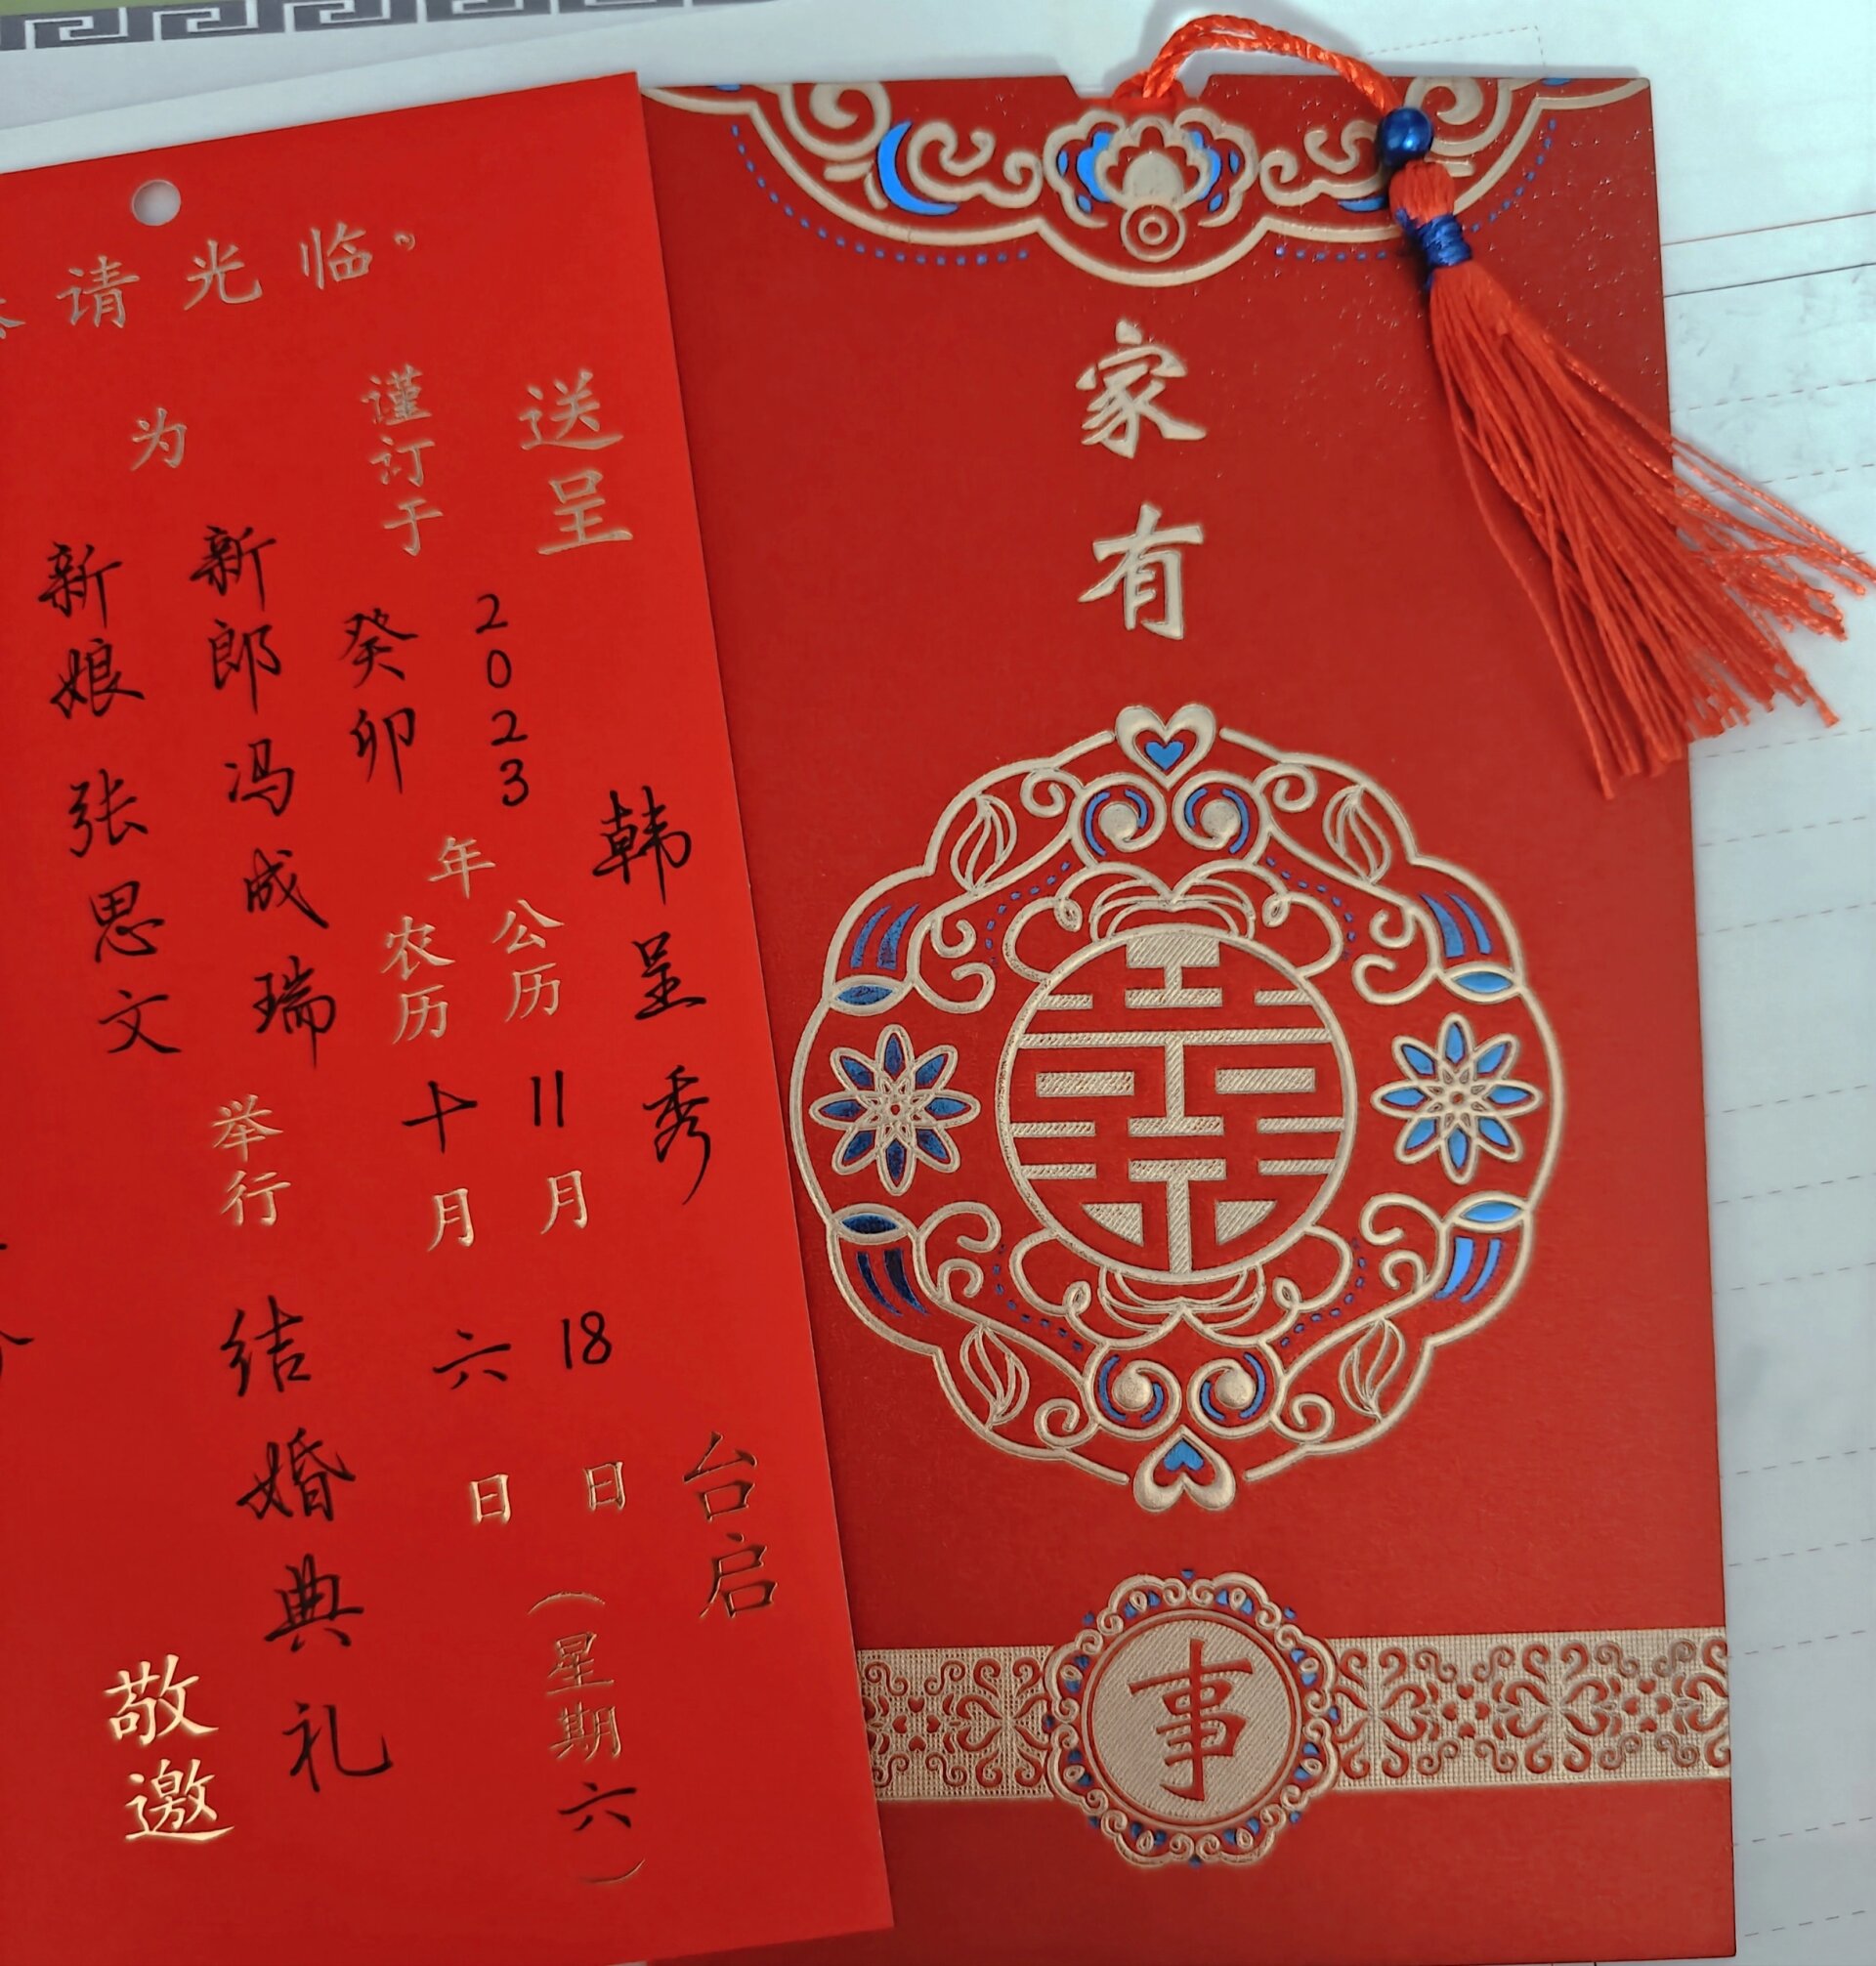 恭请光临。
送呈 韩呈秀 台启
谨订于
2023 年 公历 11 月 18 日 (星期六)
癸卯 年 农历 十 月 六 日
为
新郎 冯成瑞
新娘 张思文
举行 结婚典礼
敬邀
家有
囍
事